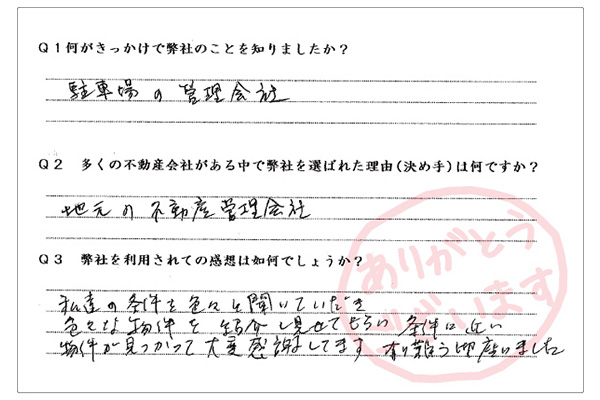 Q1 何がきっかけで弊社のことを知りましたか?
駐車場の管理会社
Q2 多くの不動産会社がある中で弊社を選ばれた理由(決め手)は何ですか?
地元の不動産管理会社
Q3 弊社を利用されての感想は如何でしょうか?
私達の条件を色々と聞いていただき
色々な物件を紹介し見せてもらい 条件に近い
物件が見つかって大変感謝してます 有り難う御座いました
ありがとう
ございます